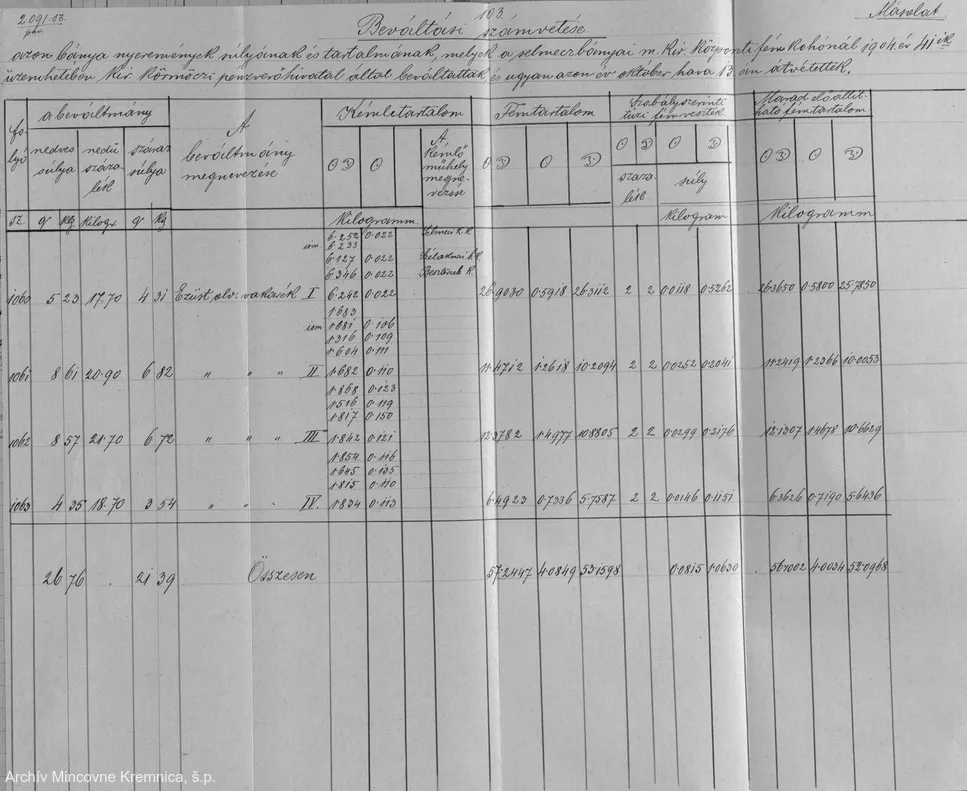 2091 sz.
103.
Másolat
Beváltási számvetése
azon bánya nyeremények súlyának és tartalmának, melyek a selmeczbányai m. kir. központi fémkohónál 1904 év 41 ik
üzemhetében kir. körmöczi pénzverőhivatal által beváltattak és ugyan azon év október hava 13 án átvétettek.
fo- lyó sz.
a beváltmány
nedves súlya
nedü száza- lék
száraz súlya
A beváltmány megnevezése
Kémletartalom
A kémlő műhely megne- vezése
Fémtartalom
Szabályszerinti tűzi fémveszték
száza- lék
súly
kilogram
Marad előállít- ható fémtartalom
q kg kilogr q kg
Kilogramm
Kilogramm
6.252 0.022 Selmeci k. k.
ism 6.233
6.127 0.022 Bélaknai k. k.
6.346 0.022
1060 5 23 17.70 4 31 Ezüst olv. vakarék I 6.242 0.022 26.9030 0.5918 26.3112 2 2 0.0118 0.5262 26.3650 0.5800 25.7850
1.683
ism 1.681 0.106
1.316 0.109
1.604 0.111
1061 8 61 20.90 6 82 " " " II 1.682 0.110 11.4712 1.2618 10.2094 2 2 0.0252 0.2041 11.2419 1.2366 10.0053
1.868 0.123
1.516 0.119
1.817 0.150
1062 8 57 21.70 6 72 " " " III 1.842 0.121 12.3782 1.4977 10.8805 2 2 0.0299 0.2176 12.1307 1.4678 10.6629
1.854 0.116
1.645 0.135
1.815 0.110
1063 4 35 18.70 3 54 " " " IV. 1.834 0.113 6.4923 0.7336 5.7587 2 2 0.0146 0.1151 6.3626 0.7190 5.6436
26 76 21 39 Összesen 57.2447 4.0849 53.1598 0.0815 1.0630 56.1002 4.0034 52.0968
Archív Mincovne Kremnica, š.p.